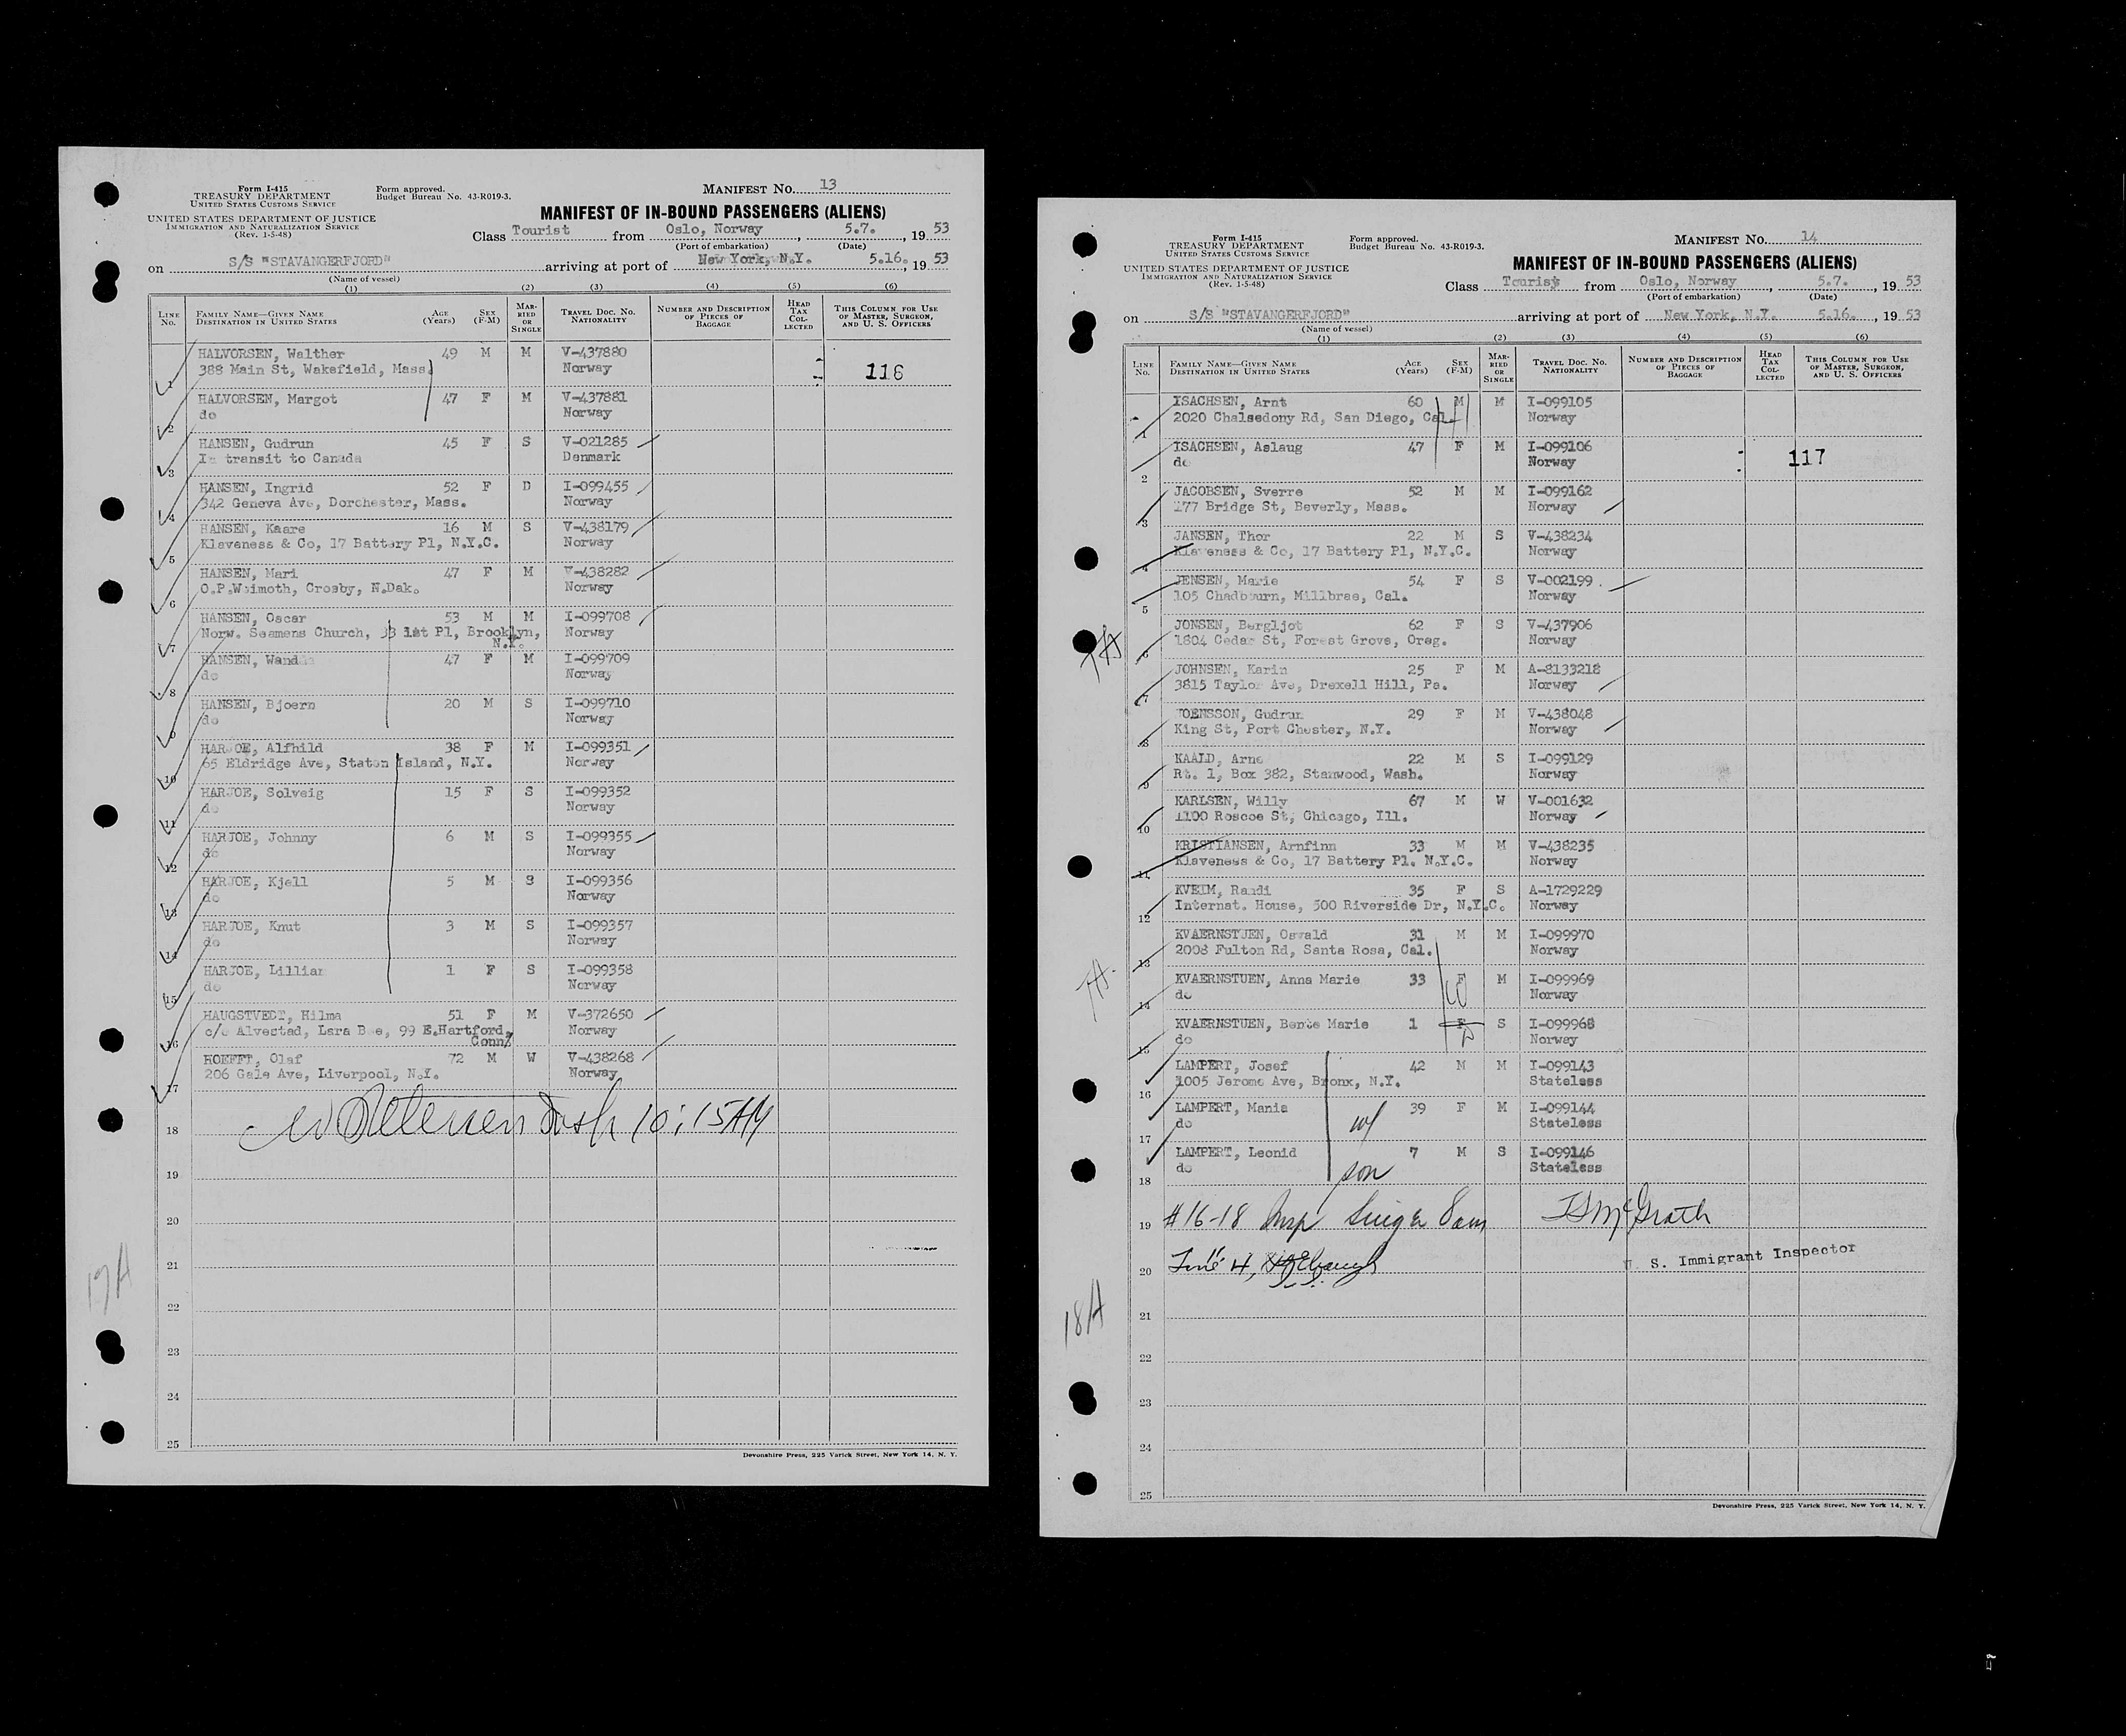 Form I-415
TREASURY DEPARTMENT
UNITED STATES CUSTOMS SERVICE
UNITED STATES DEPARTMENT OF JUSTICE
IMMIGRATION AND NATURALIZATION SERVICE
(Rev. 1-5-48)
Form approved.
Budget Bureau No. 43-R019-3.
MANIFEST No. 13
MANIFEST OF IN-BOUND PASSENGERS (ALIENS)
Class Tourist from Oslo, Norway, 5.7., 19 53
(Port of embarkation) (Date)
on S/S "STAVANGERFJORD" arriving at port of New York, N.Y. 5.16., 19 53
(Name of vessel)
(1) (2) (3) (4) (5) (6)
LINE No. FAMILY NAME—GIVEN NAME DESTINATION IN UNITED STATES AGE (Years) SEX (F-M) MARRIED OR SINGLE TRAVEL DOC. NO. NATIONALITY NUMBER AND DESCRIPTION OF PIECES OF BAGGAGE HEAD TAX COLLECTED THIS COLUMN FOR USE OF MASTER, SURGEON, AND U. S. OFFICERS
HALVORSEN, Walther 49 M M V-437880
1 388 Main St, Wakefield, Mass. Norway 116
HALVORSEN, Margot 47 F M V-437881
2 do Norway
HANSEN, Gudrun 45 F S V-021285
3 In transit to Canada Denmark
HANSEN, Ingrid 52 F D I-099455
4 342 Geneva Ave, Dorchester, Mass. Norway
HANSEN, Kaare 16 M S V-438179
5 Klaveness & Co, 17 Battery Pl, N.Y.C. Norway
HANSEN, Mari 47 F M V-438282
6 O.P.Weimoth, Crosby, N.Dak. Norway
HANSEN, Oscar 53 M M I-099708
7 Norw. Seamens Church, 33 1st Pl, Brooklyn, N.Y. Norway
HANSEN, Wanda 47 F M I-099709
8 do Norway
HANSEN, Bjoern 20 M S I-099710
9 do Norway
HARJOE, Alfhild 38 F M I-099351
10 65 Eldridge Ave, Staten Island, N.Y. Norway
HARJOE, Solveig 15 F S I-099352
11 do Norway
HARJOE, Johnny 6 M S I-099355
12 do Norway
HARJOE, Kjell 5 M S I-099356
13 do Norway
HARJOE, Knut 3 M S I-099357
14 do Norway
HARJOE, Lillian 1 F S I-099358
15 do Norway
HAUGSTVEDT, Hilma 51 F M V-372650
16 c/o Alvestad, Lara Bee, 99 E.Hartford, Conn. Norway
HOEFFT, Olaf 72 M W V-438268
17 206 Gale Ave, Liverpool, N.Y. Norway
18 10:15 AM
19
20
21
22
23
24
25
17A
Devonshire Press, 225 Varick Street, New York 14, N. Y.
Form I-415
TREASURY DEPARTMENT
UNITED STATES CUSTOMS SERVICE
UNITED STATES DEPARTMENT OF JUSTICE
IMMIGRATION AND NATURALIZATION SERVICE
(Rev. 1-5-48)
Form approved.
Budget Bureau No. 43-R019-3.
MANIFEST No. 14
MANIFEST OF IN-BOUND PASSENGERS (ALIENS)
Class Tourist from Oslo, Norway, 5.7., 19 53
(Port of embarkation) (Date)
on S/S "STAVANGERFJORD" arriving at port of New York, N.Y. 5.16., 19 53
(Name of vessel)
(1) (2) (3) (4) (5) (6)
LINE No. FAMILY NAME—GIVEN NAME DESTINATION IN UNITED STATES AGE (Years) SEX (F-M) MARRIED OR SINGLE TRAVEL DOC. NO. NATIONALITY NUMBER AND DESCRIPTION OF PIECES OF BAGGAGE HEAD TAX COLLECTED THIS COLUMN FOR USE OF MASTER, SURGEON, AND U. S. OFFICERS
ISACHSEN, Arnt 60 M M I-099105
1 2020 Chalsedony Rd, San Diego, Cal. Norway
ISACHSEN, Aslaug 47 F M I-099106
2 do Norway 117
JACOBSEN, Sverre 52 M M I-099162
3 177 Bridge St, Beverly, Mass. Norway
JANSEN, Thor 22 M S V-438234
4 Klaveness & Co, 17 Battery Pl, N.Y.C. Norway
JENSEN, Marie 54 F S V-002199
5 105 Chadbourn, Millbrae, Cal. Norway
JONSEN, Bergljot 62 F S V-437906
6 1804 Cedar St, Forest Grove, Oreg. Norway
JOHNSEN, Karin 25 F M A-8133218
7 3815 Taylor Ave, Drexell Hill, Pa. Norway
JOENSSON, Gudrun 29 F M V-438048
8 King St, Port Chester, N.Y. Norway
KAALD, Arne 22 M S I-099129
9 Rt. 1, Box 382, Stanwood, Wash. Norway
KARLSEN, Willy 67 M W V-001632
10 1100 Roscoe St, Chicago, Ill. Norway
KRISTIANSEN, Arnfinn 33 M M V-438235
11 Klaveness & Co, 17 Battery Pl. N.Y.C. Norway
KVEIM, Randi 35 F S A-1729229
12 Internat. House, 500 Riverside Dr, N.Y.C. Norway
KVAERNSTUEN, Osvald 31 M M I-099970
13 2008 Fulton Rd, Santa Rosa, Cal. Norway
KVAERNSTUEN, Anna Marie 33 F M I-099969
14 do Norway
KVAERNSTUEN, Bente Marie 1 F S I-099968
15 do Norway
LAMPERT, Josef 42 M M I-099143
16 1005 Jerome Ave, Bronx, N.Y. Stateless
LAMPERT, Mania 39 F M I-099144
17 do wf Stateless
LAMPERT, Leonid 7 M S I-099146
18 do son Stateless
19 #16-18 Insp Singer 8am JSMcGrath
20 Line 4, U. S. Immigrant Inspector
21
22
23
24
25
18A
Devonshire Press, 225 Varick Street, New York 14, N. Y.